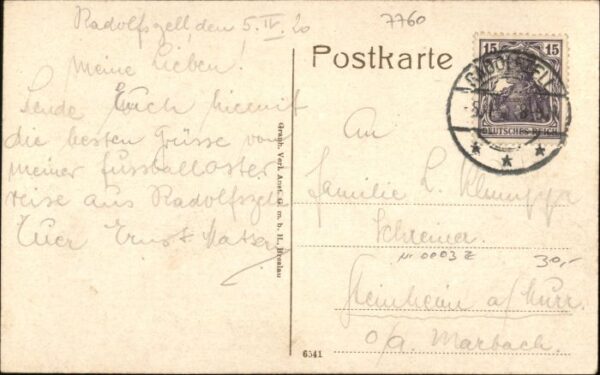 Radolfszell, den 5. IV. 20
Meine Lieben!
Sende Euch hiermit
die besten Grüsse von
meiner Fussballoster
reise aus Radolfszell
Euer Ernst
7760
Postkarte
15 15
DEUTSCHES REICH
An
Familie L. Klumpp
Schreiner.
N 0003 Z
30,-
Steinheim a/Murr.
o/a. Marbach.
Graph. Verl. Anst. G. m. b. H., Breslau
6341